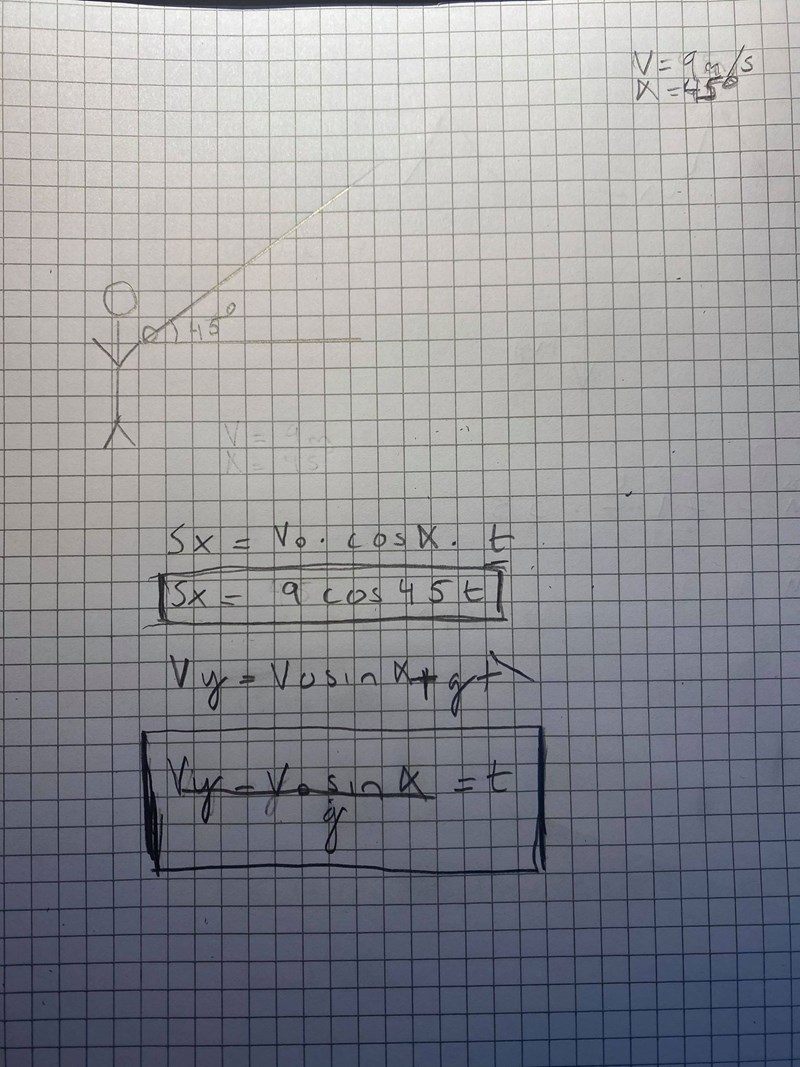 V = 9 m/s
X = 45°
45°
V = 9m
X = 45°
Sx = Vo · cosX · t
Sx = 9 cos 45 t
Vy = Vo sin X + gt
Vy - Vo sin X = t
g